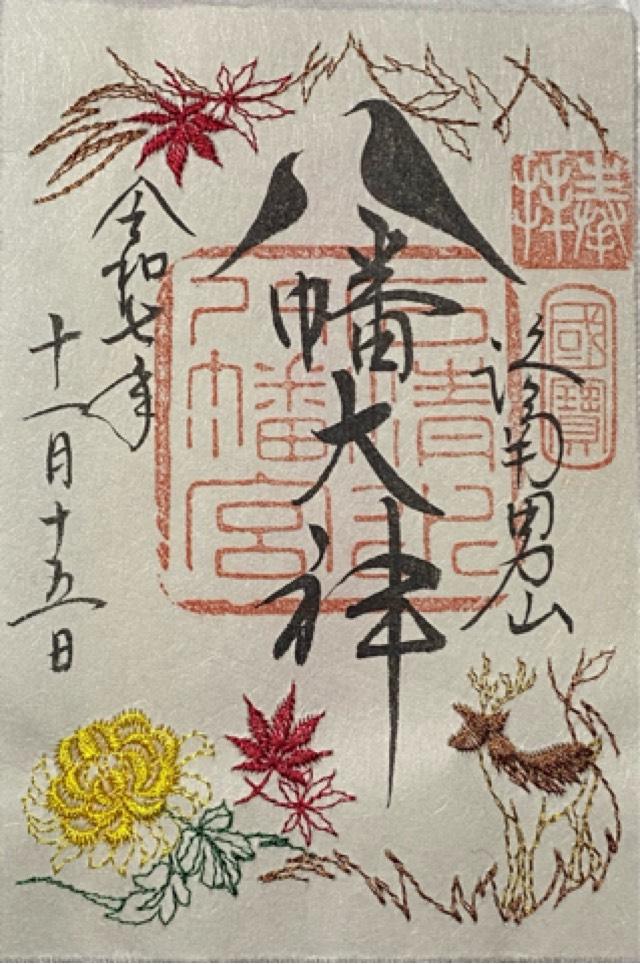 奉拝
國寶
洛南男山
八幡大神
石清水
八幡宮
令和七年
十一月十五日